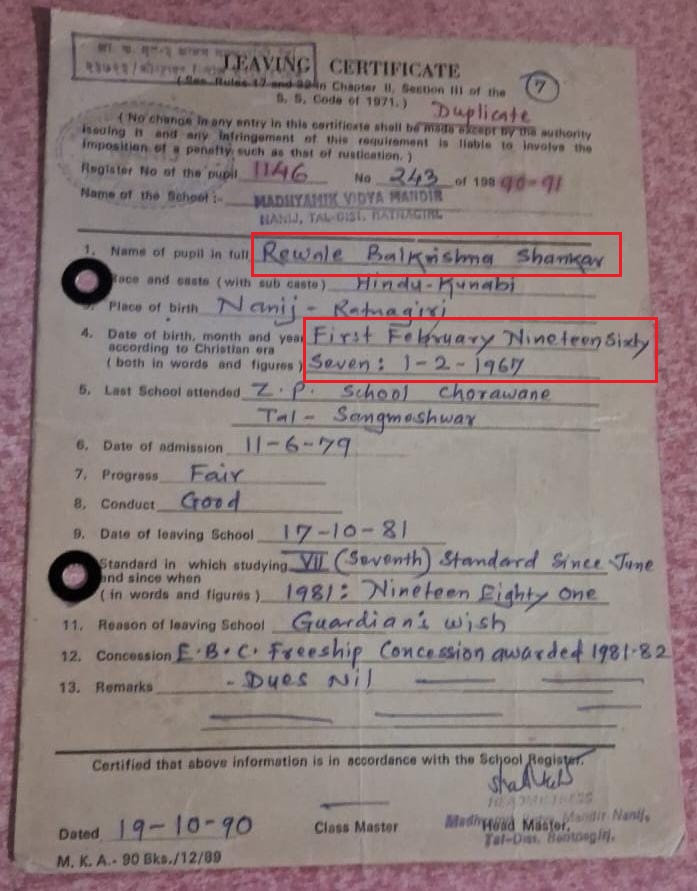 LEAVING CERTIFICATE
7
( See Rules 17 and in Chapter II, Section III of the
S. S. Code of 1971. )
Duplicate
( No change in any entry in this certificate shall be made except by the authority
issuing it and any infringement of this requirement is liable to involve the
imposition of a penalty such as that of rustication. )
Register No of the pupil 1146 No 243 of 199 90-91
Name of the School :- MADHYAMIK VIDYA MANDIR
NANIJ, TAL-DIST. RATNAGIRI.
1. Name of pupil in full Rewale Balkrishna Shankar
Race and caste (with sub caste) Hindu-Kunabi
3. Place of birth Nanij - Ratnagiri
4. Date of birth, month and year First February Nineteen Sixty
according to Christian era
( both in words and figures ) Seven : 1-2-1967
5. Last School attended Z. P. School Chorawane
Tal - Sangmeshwar
6. Date of admission 11-6-79
7. Progress Fair
8. Conduct Good
9. Date of leaving School 17-10-81
Standard in which studying VII (Seventh) Standard Since June
and since when
( in words and figures ) 1981 : Nineteen Eighty One
11. Reason of leaving School Guardian's wish
12. Concession E.B.C. Freeship Concession awarded 1981-82
13. Remarks - Dues Nil
Certified that above information is in accordance with the School Register.
HEADMISTRESS
Dated 19-10-90 Class Master Head Master, Mandir Nanij,
Tal-Dist. Ratnagiri.
M. K. A.- 90 Bks./12/89